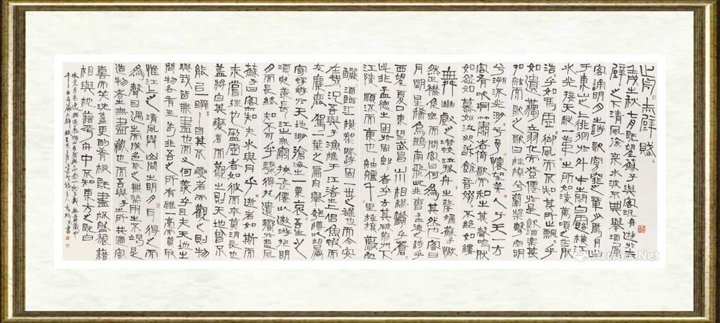 前赤壁賦
壬戌之秋七月既望蘇子與客泛舟遊於赤
壁之下清風徐來水波不興舉酒屬
客誦明月之詩歌窈窕之章少焉月出
於東山之上徘徊於斗牛之間白露橫江
水光接天縱一葦之所如凌萬頃之茫然
浩浩乎馮虛御風而不知其所止飄飄乎
如遺世獨立羽化而登僊於是飲酒樂甚
扣舷而歌之歌曰桂棹兮蘭槳擊空明
兮泝流光渺渺兮予懷望美人兮天一方
客有吹洞簫者倚歌而和之其聲嗚嗚
然如怨如慕如泣如訴餘音嫋嫋不絕如縷
舞幽壑之潛蛟泣孤舟之嫠婦蘇子愀
然正襟危坐而問客曰何為其然也客曰
月明星稀烏鵲南飛此非曹孟德之詩乎
西望夏口東望武昌山川相繆鬱乎蒼蒼
此非孟德之困於周郎者乎方其破荊州下
江陵順流而東也舳艫千里旌旗蔽空
釃酒臨江橫槊賦詩固一世之雄也而今安
在哉況吾與子漁樵於江渚之上侶魚蝦而
友麋鹿駕一葉之扁舟舉匏樽以相屬
寄蜉蝣於天地渺滄海之一粟哀吾生之
須臾羨長江之無窮挾飛僊以遨遊抱明
月而長終知不可乎驟得託遺響於悲風
蘇子曰客亦知夫水與月乎逝者如斯而
未嘗往也盈虛者如彼而卒莫消長也
蓋將自其變者而觀之則天地曾不
能以一瞬自其不變者而觀之則物
與我皆無盡也而又何羨乎且夫天地之
間物各有主苟非吾之所有雖一毫而莫取
惟江上之清風與山間之明月耳得之而
為聲目遇之而成色取之無禁用之不竭是
造物者之無盡藏也而吾與子之所共適客
喜而笑洗盞更酌肴核既盡杯盤狼藉
相與枕藉乎舟中不知東方之既白